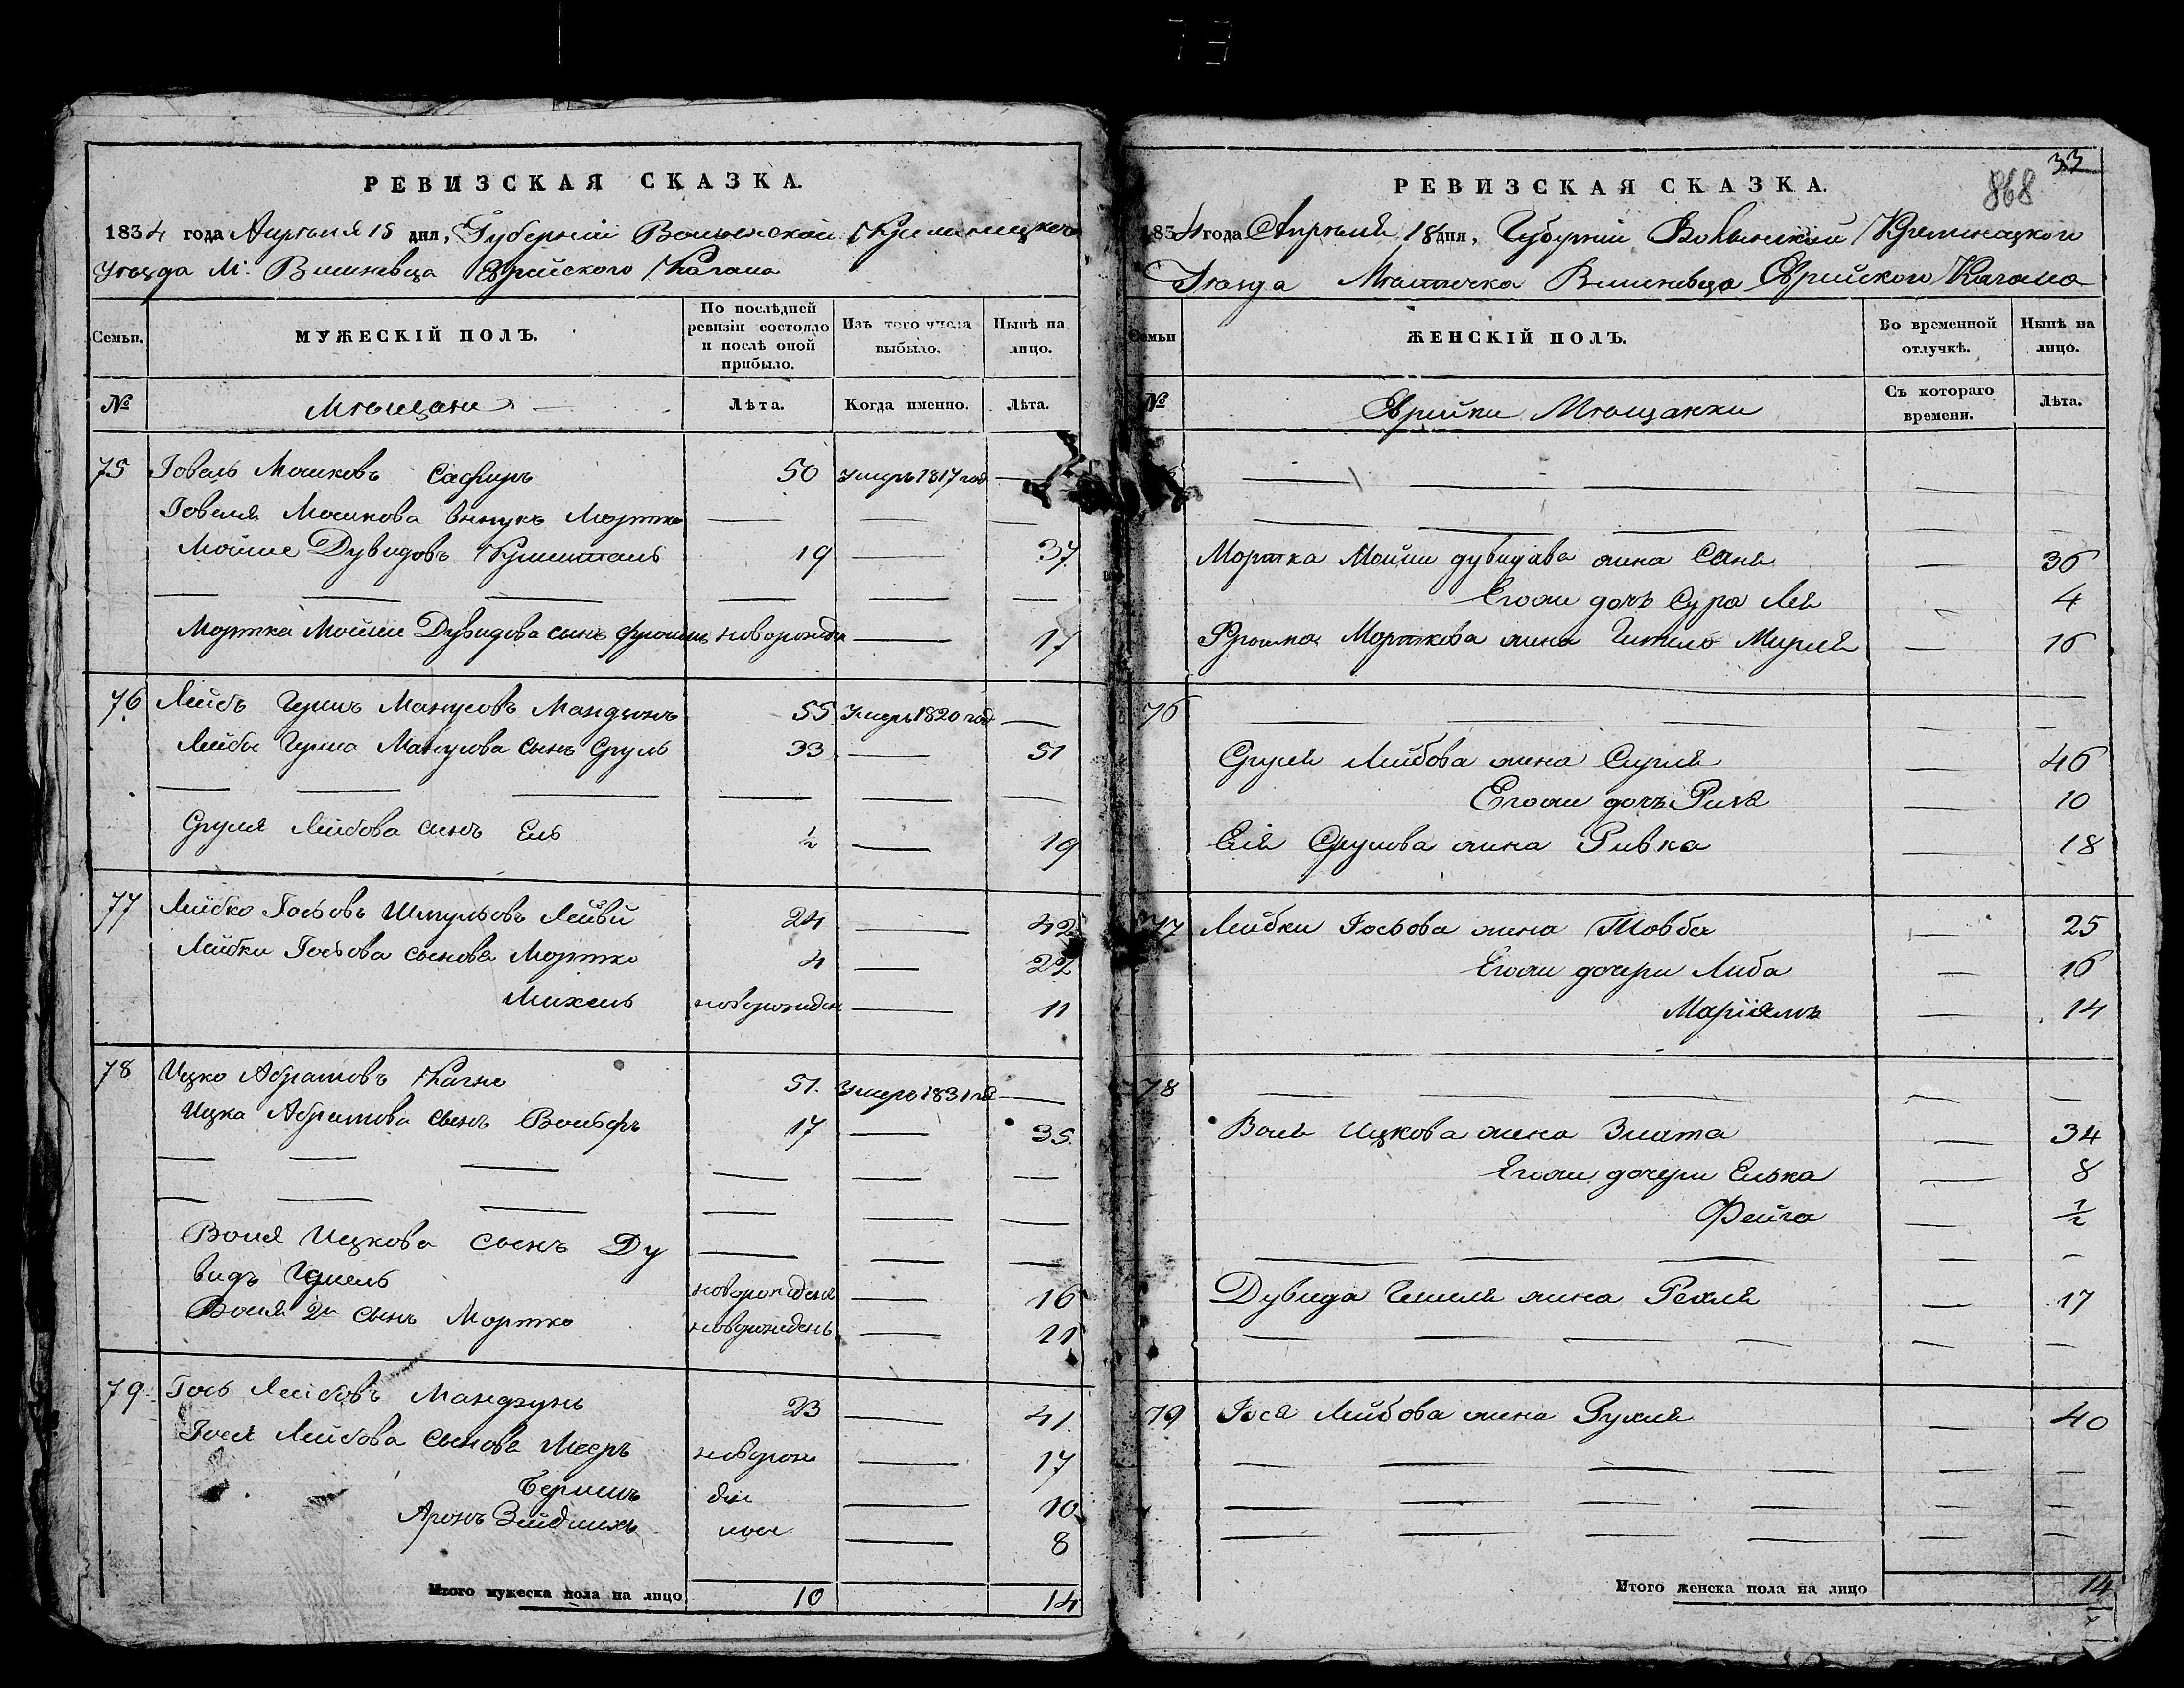 РЕВИЗСКАЯ СКАЗКА.
1834 года Апреля 18 дня, Губерніи Волынской Кременецкого
Уезда М. Вишневца Еврейского Кагала
Семьи. МУЖЕСКІЙ ПОЛЪ. По послѣдней ревизіи состояло и послѣ оной прибыло. Изъ того числа выбыло. Нынѣ на лицо.
№ Мѣщане Лѣта. Когда именно. Лѣта.
75 Іовель Мошковъ Сафиръ 50 Умеръ 1817 год —
Іовеля Мошкова внукъ Мортко — — —
Мойше Дувидовъ 19 — 37
— — — — — —
Мортка Мойше Дувидова сынъ Фроимъ новорожден — 17
76 Лейбъ Гершъ Манусовъ Мандзюкъ 55 Умеръ 1820 год —
Лейбы Герша Манусова сынъ Сруль 33 — 51
— — — — — —
Сруля Лейбова сынъ Ель ½ — 19
77 Лейбко Іосьовъ Шмульовъ Лейви 24 — 42
Лейбки Іосьова сынова Мортко 4 — 22
Михель новорожден — 11
78 Ицко Абрамовъ Кагне 51. Умеръ 1831 го —
Ицка Абрамова сынъ Вольфъ 17 — 35.
— — — — — —
— — — — — —
Воля Ицкова сынъ Ду — — —
видъ Гершель новорожденъ — 16
Воля 2й сынъ Мортко новорожденъ — 11
79. Іось Лейбовъ Мандзунь 23 — 41.
Іося Лейбова сынова Мееръ новорож — 17
Бершъ ден — 10
Аронъ Зейдлихъ ные — 8
Итого мужеска пола на лицо 10 14
33
868
РЕВИЗСКАЯ СКАЗКА.
1834 года Апреля 18 дня, Губерніи Волынской Кременецкого
Уезда Местечка Вишневца Еврейского Кагала
Семьи ЖЕНСКІЙ ПОЛЪ. Во временной отлучкѣ. Нынѣ на лицо.
№ Еврейки Мещанки Съ котораго времени. Лѣта.
— — — — —
— — — — —
Мортка Мойши Дувидова жена Саня — 36
Егожъ дочь Сура Лея — 4
Фроима Морткова жена Гитель Мирля — 16
76 — — — — —
Сруля Лейбова жена Сирля — 46
Егожъ дочь Рися — 10
Еля Срулова жена Ривка — 18
77 Лейбки Іосьова жена Товба — 25
Егожъ дочери Либа — 16
Маріямъ — 14
78 — — — — —
Воля Ицкова жена Злата — 34
Егожъ дочери Елька — 8
Фейга — ½
— — — — —
Дувида Гешеля жена Рехля — 17
— — — — — —
79 Іося Лейбова жена Рухля — 40
— — — — — —
— — — — — —
— — — — — —
Итого женска пола на лицо 14